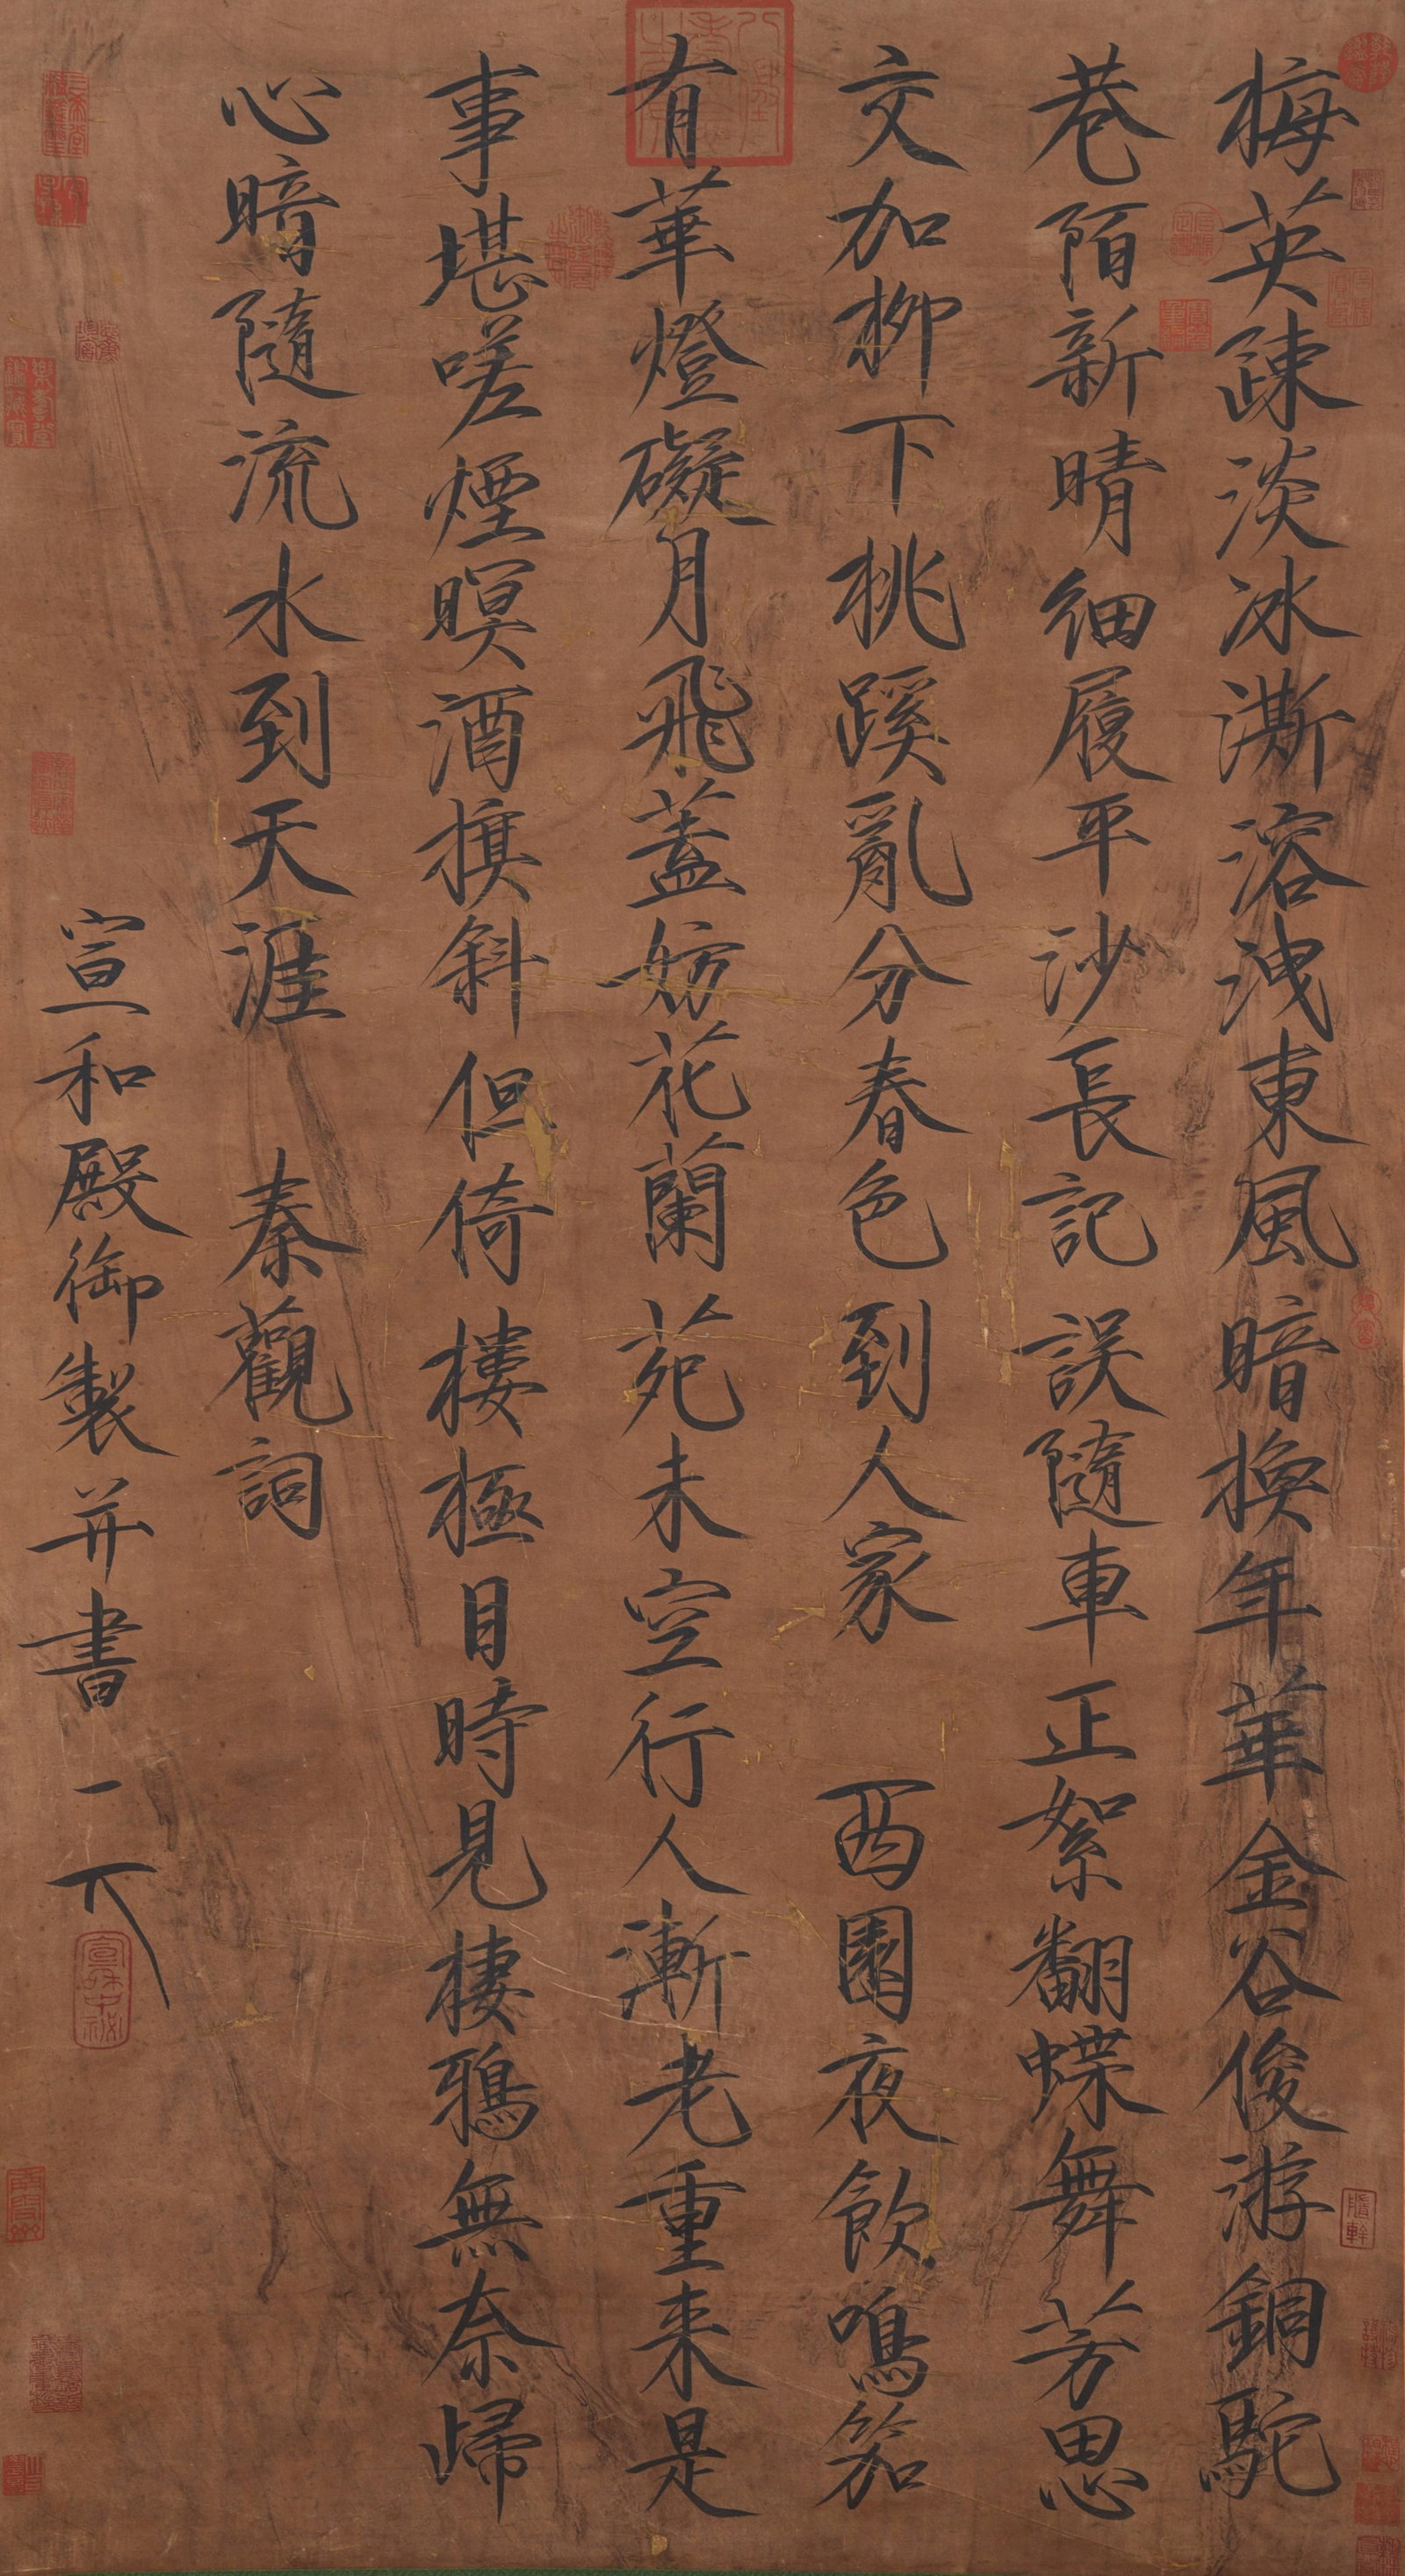 梅英疎淡冰澌溶洩東風暗換年華金谷俊游銅駝
巷陌新晴細履平沙長記誤隨車正絮翻蝶舞芳思
交加柳下桃蹊亂分春色到人家 西園夜飲鳴笳
有華燈礙月飛蓋妨花蘭苑未空行人漸老重来是
事堪嗟煙暝酒旗斜但倚樓極目時見棲鴉無奈歸
心暗隨流水到天涯 秦觀詞
宣和殿御製并書